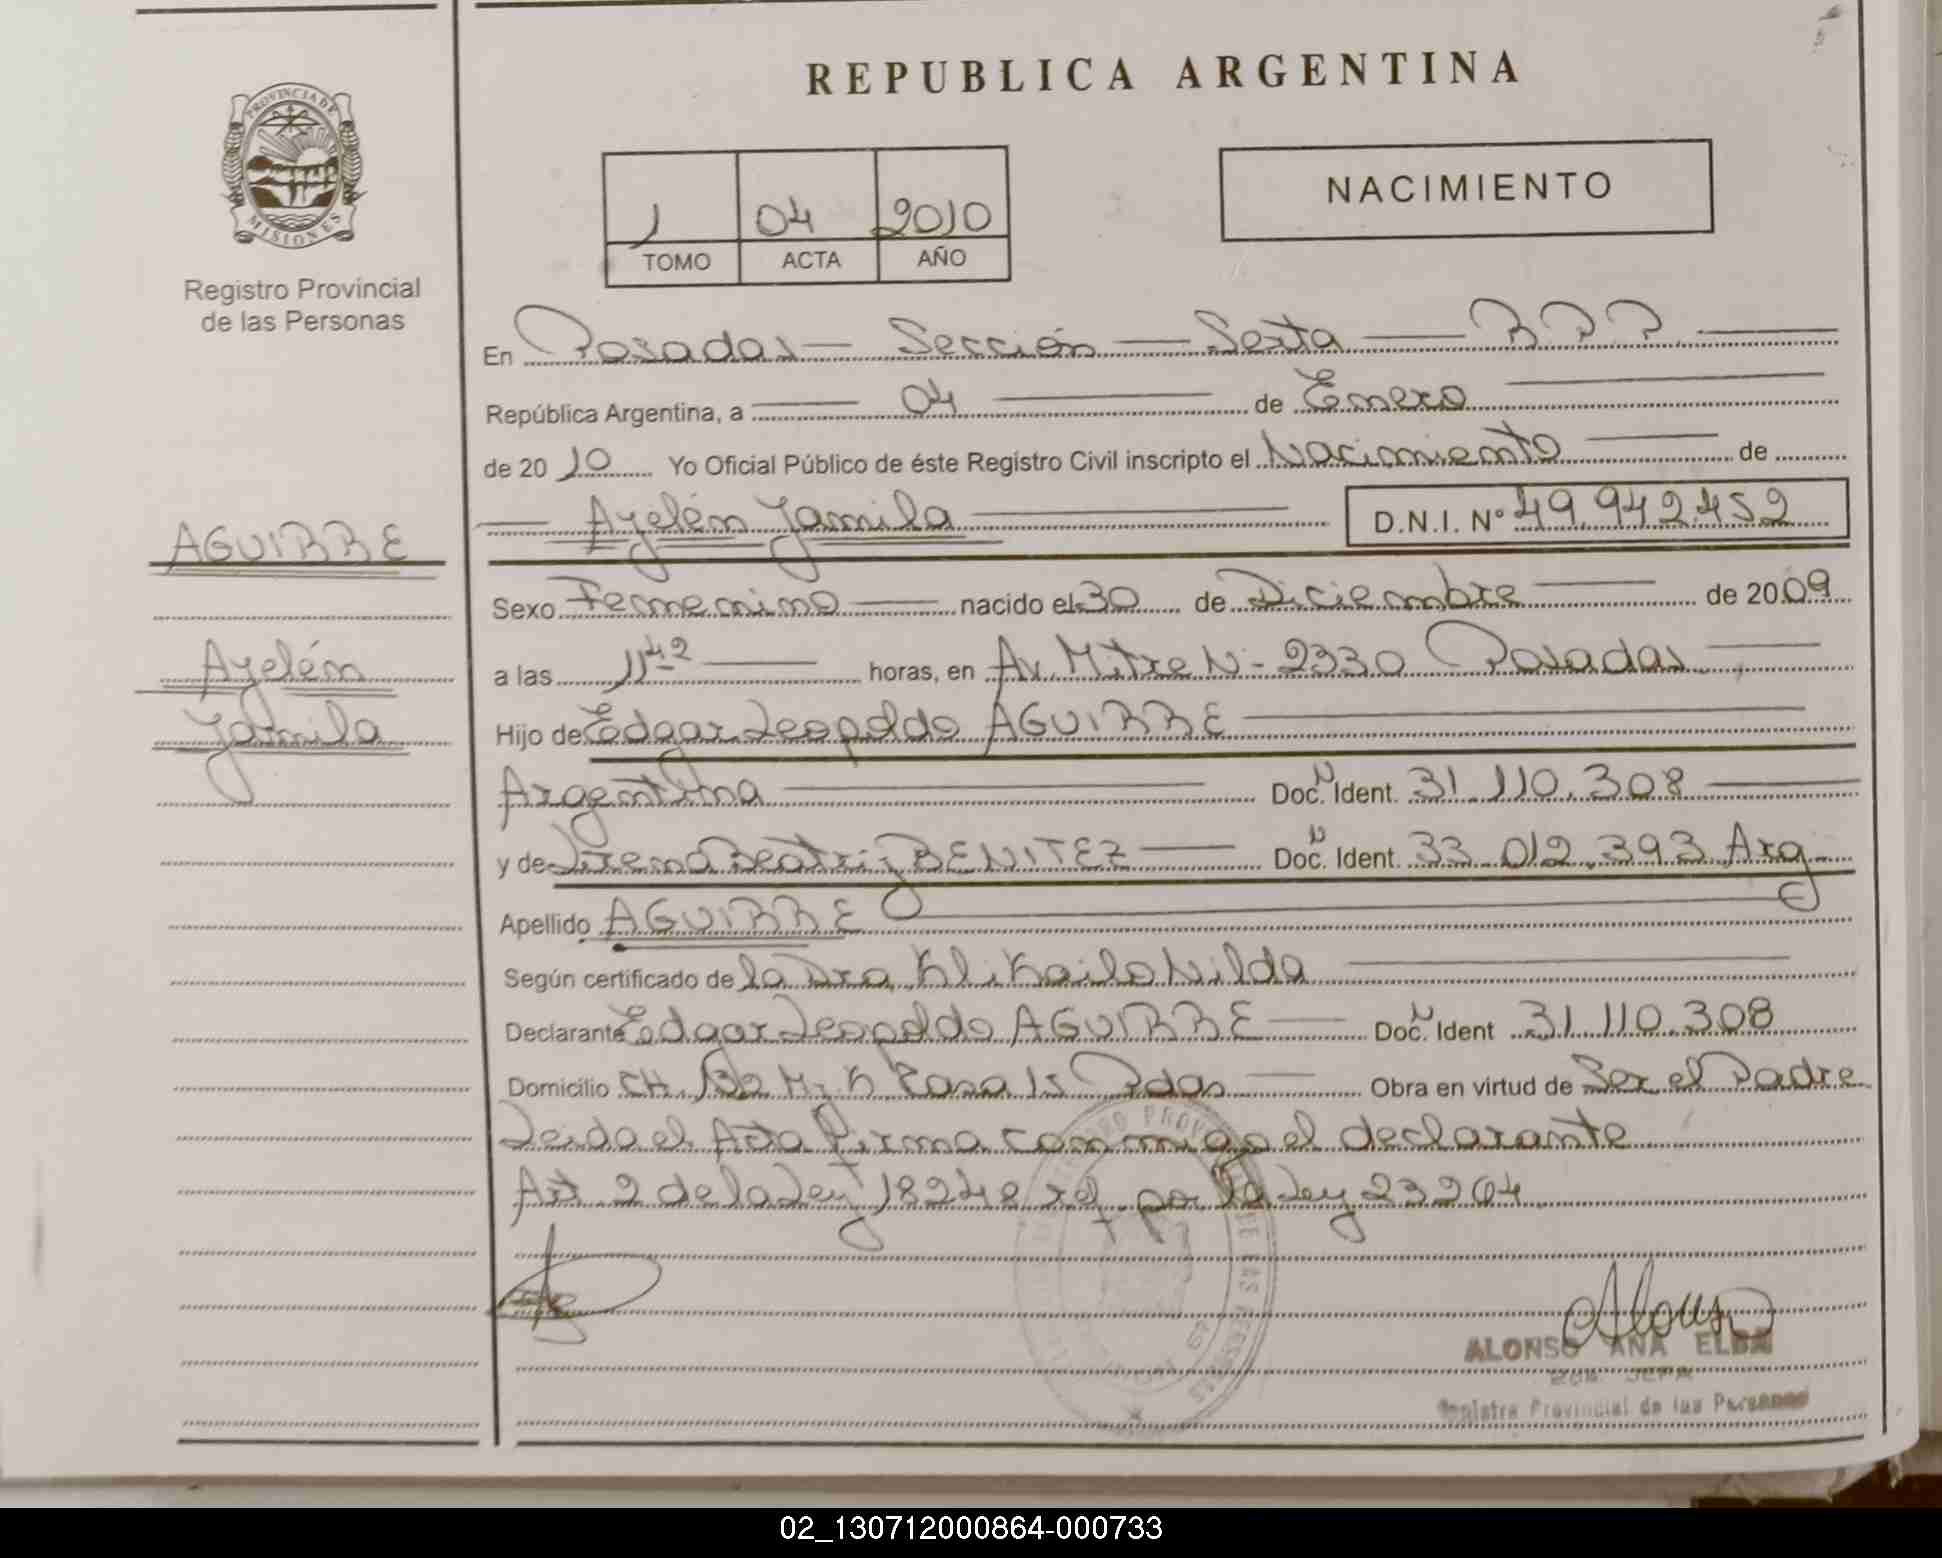 REPUBLICA ARGENTINA
PROVINCIA DE
MISIONES
Registro Provincial
de las Personas
NACIMIENTO
1 04 2010
TOMO ACTA AÑO
En Posadas — Sección — Sexta — R P P.
República Argentina, a 04 de Enero
de 20 10 Yo Oficial Público de éste Registro Civil inscripto el Nacimiento de
Ayelén Jamila D.N.I. N° 49.942.452
AGUIRRE
Ayelén
Jamila
Sexo Femenino nacido el 30 de Diciembre de 20 09
a las 11 42 horas, en Av. Mitre N- 2330 Posadas
Hijo de Edgar Leopoldo AGUIRRE
Argentina Doc. N Ident. 31.110.308
y de Beatriz BENITEZ Doc. N Ident. 33.012.393 Arg
Apellido AGUIRRE
Según certificado de la Dra. Nilda
Declarante Edgar Leopoldo AGUIRRE Doc. N Ident 31.110.308
Domicilio CH. Casa 15 Pdas Obra en virtud de Ser el Padre
Leida el Acta firma conmigo el declarante
Art. 2 de la Ley 18248 ref. por la Ley 23264
ALONSO ANA ELBA
Registro Provincial de las Personas
02_130712000864-000733